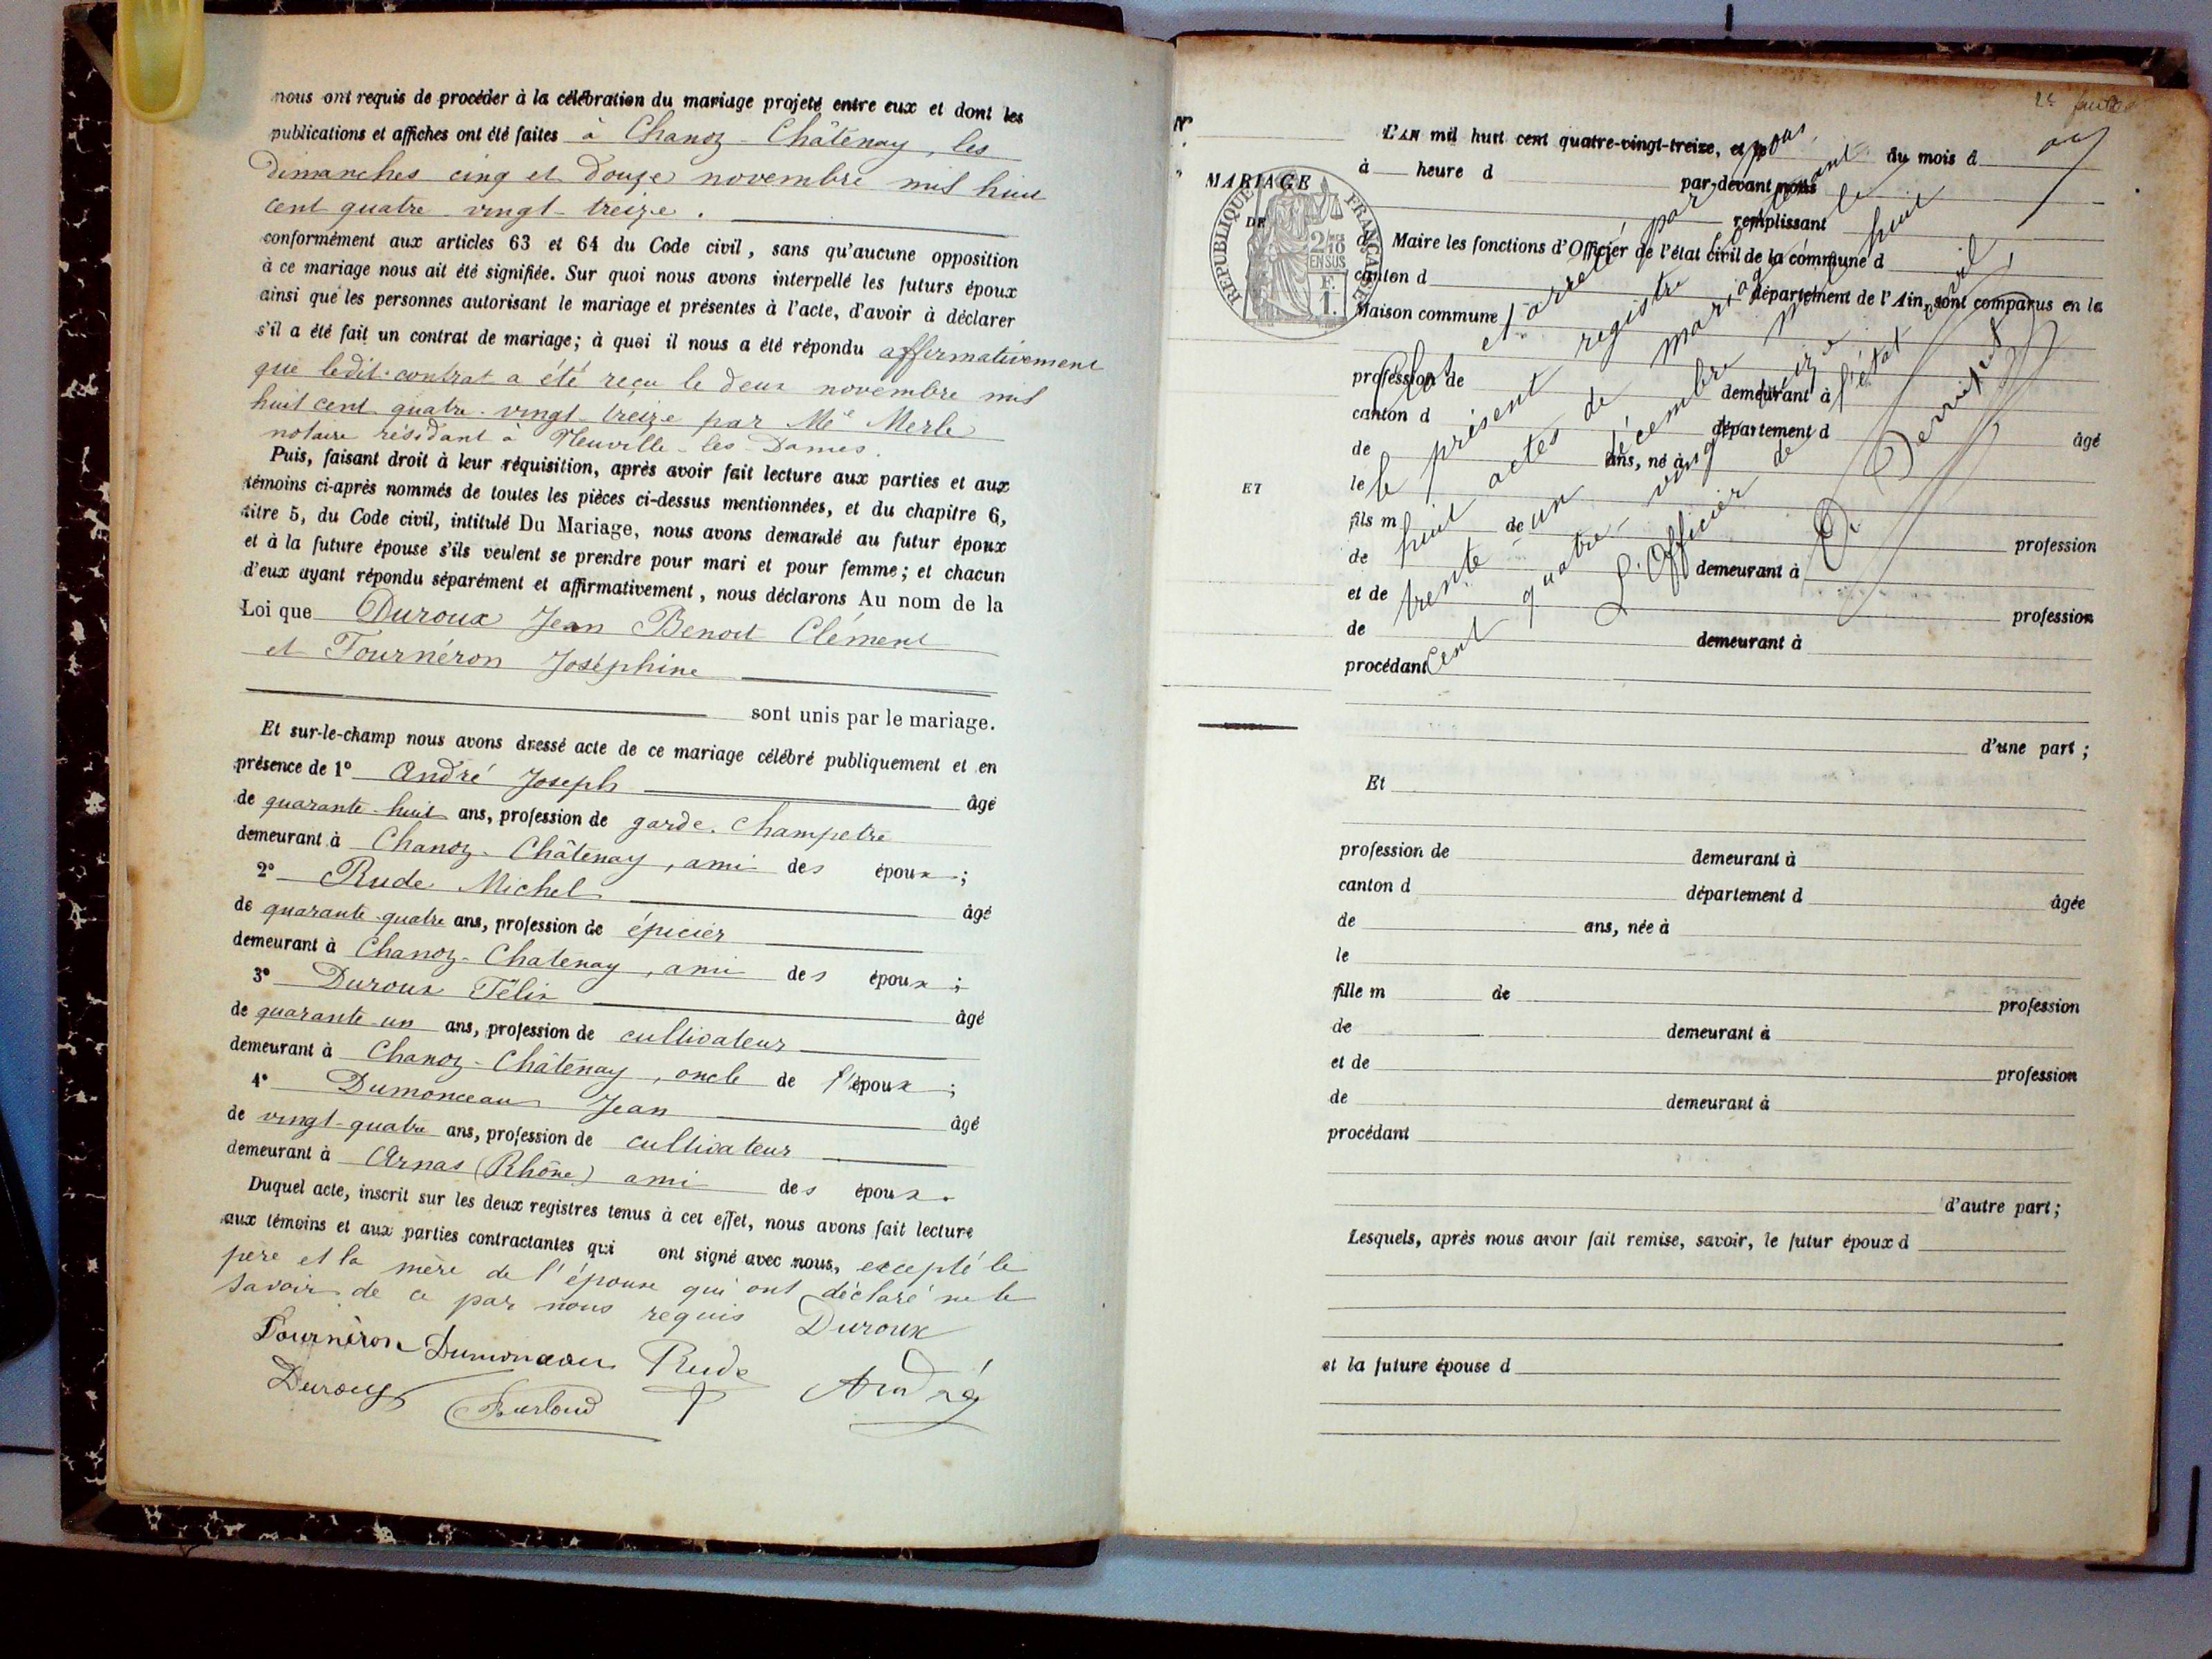 nous ont requis de procéder à la célébration du mariage projeté entre eux et dont les
publications et affiches ont été faites à Chanoz-Châtenay, les
dimanches cinq et douze novembre mil huit
cent quatre-vingt-treize.
conformément aux articles 63 et 64 du Code civil, sans qu'aucune opposition
à ce mariage nous ait été signifiée. Sur quoi nous avons interpellé les futurs époux
ainsi que les personnes autorisant le mariage et présentes à l'acte, d'avoir à déclarer
s'il a été fait un contrat de mariage; à quoi il nous a été répondu affirmativement
que ledit contrat a été reçu le deux novembre mil
huit cent quatre-vingt-treize par Me Merle
notaire résidant à Neuville-les-Dames.
Puis, faisant droit à leur réquisition, après avoir fait lecture aux parties et aux
témoins ci-après nommés de toutes les pièces ci-dessus mentionnées, et du chapitre 6,
titre 5, du Code civil, intitulé Du Mariage, nous avons demandé au futur époux
et à la future épouse s'ils veulent se prendre pour mari et pour femme; et chacun
d'eux ayant répondu séparément et affirmativement, nous déclarons Au nom de la
Loi que Duroux Jean Benoit Clément
et Fournéron Joséphine
sont unis par le mariage.
Et sur-le-champ nous avons dressé acte de ce mariage célébré publiquement et en
présence de 1° André Joseph âgé
de quarante-huit ans, profession de garde-champetre
demeurant à Chanoz-Châtenay, ami des époux;
2° Rude Michel âgé
de quarante-quatre ans, profession de épicier
demeurant à Chanoz-Chatenay, ami des époux;
3° Duroux Félix âgé
de quarante-un ans, profession de cultivateur
demeurant à Chanoz-Châtenay, oncle de l'époux;
4° Dumonceau Jean âgé
de vingt-quatre ans, profession de cultivateur
demeurant à Arnas (Rhône) ami des époux.
Duquel acte, inscrit sur les deux registres tenus à cet effet, nous avons fait lecture
aux témoins et aux parties contractantes qui ont signé avec nous, excepté le
père et la mère de l'épouse qui ont déclaré ne le
savoir de ce par nous requis Duroux
Fournéron Dumonceau Rude
Duroux André
N°
MARIAGE
DE
ET
RÉPUBLIQUE FRANÇAISE
2/10 EN SUS
F. 1.
L'AN mil huit cent quatre-vingt-treize, et le du mois d
à heure d par-devant nous
remplissant
d Maire les fonctions d'Officier de l'état civil de la commune d
canton d département de l'Ain, sont comparus en la
Maison commune,
profession de demeurant à
canton d département d âgé
de ans, né à
le
fils m de profession
de demeurant à
et de profession
de demeurant à
procédant
d'une part;
Clos et arrêté par nous,
le présent registre contenant
huit actes de mariage le
trente-un décembre mil huit
cent quatre-vingt-treize
L'Officier de l'état civil,
Et
profession de demeurant à
canton d département d âgée
de ans, née à
le
fille m de profession
de demeurant à
et de profession
de demeurant à
procédant
d'autre part;
Lesquels, après nous avoir fait remise, savoir, le futur époux d
et la future épouse d